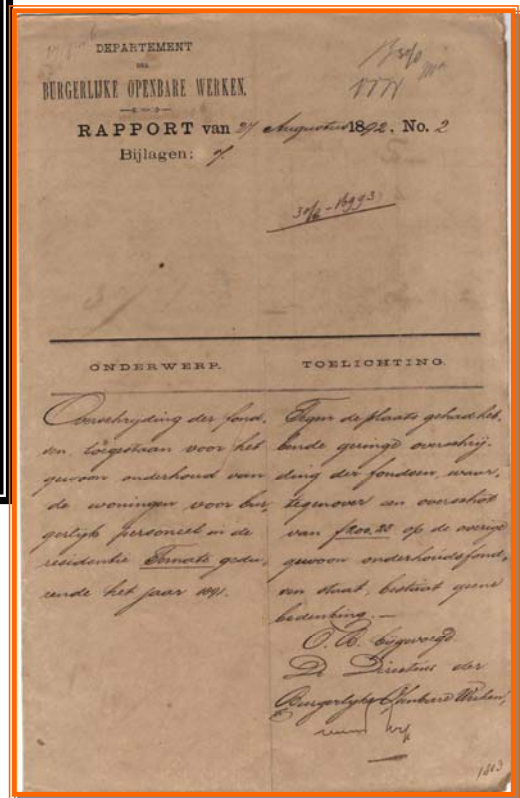 DEPARTEMENT
DER
BURGERLIJKE OPENBARE WERKEN.
RAPPORT van 27 Augustus 1892, No. 2
Bijlagen:
30/6 - 1893
ONDERWERP.
Overschrijding der fond-
sen, toegestaan voor het
gewoon onderhoud van
de woningen voor bur-
gerlijk personeel in de
residentie Ternate gedu-
rende het jaar 1891.
TOELICHTING.
Tegen de plaats gehad heb-
bende geringe overschrij-
ding der fondsen, waar-
tegenover een overschot
van f200.28 op de overige
gewoon onderhoudsfond-
sen staat, bestaat geene
bedenking.—
O. B. bijgevoegd.
De Directeur der
Burgerlijke Openbare Werken,